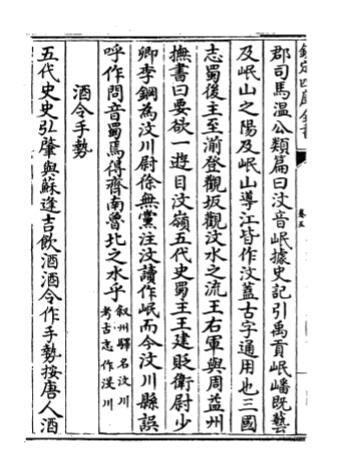 欽定四庫全書
卷三
郡司馬温公類篇曰汶音岷據史記引禹貢岷嶓既藝
及岷山之陽及岷山導江皆作汶蓋古字通用也三國
志蜀後主至湔登觀坂觀汶水之流王右軍與周益州
撫書曰要欲一遊目汶嶺五代史蜀主王建貶衛尉少
卿李鋼為汶川尉徐無黨注汶讀作岷而今汶川縣誤
呼作問音蜀焉得齊南魯北之水乎
叙州驛名汶川
考古志作汊川
酒令手勢
五代史史弘肇與蘇逢吉飲酒酒令作手勢按唐人酒